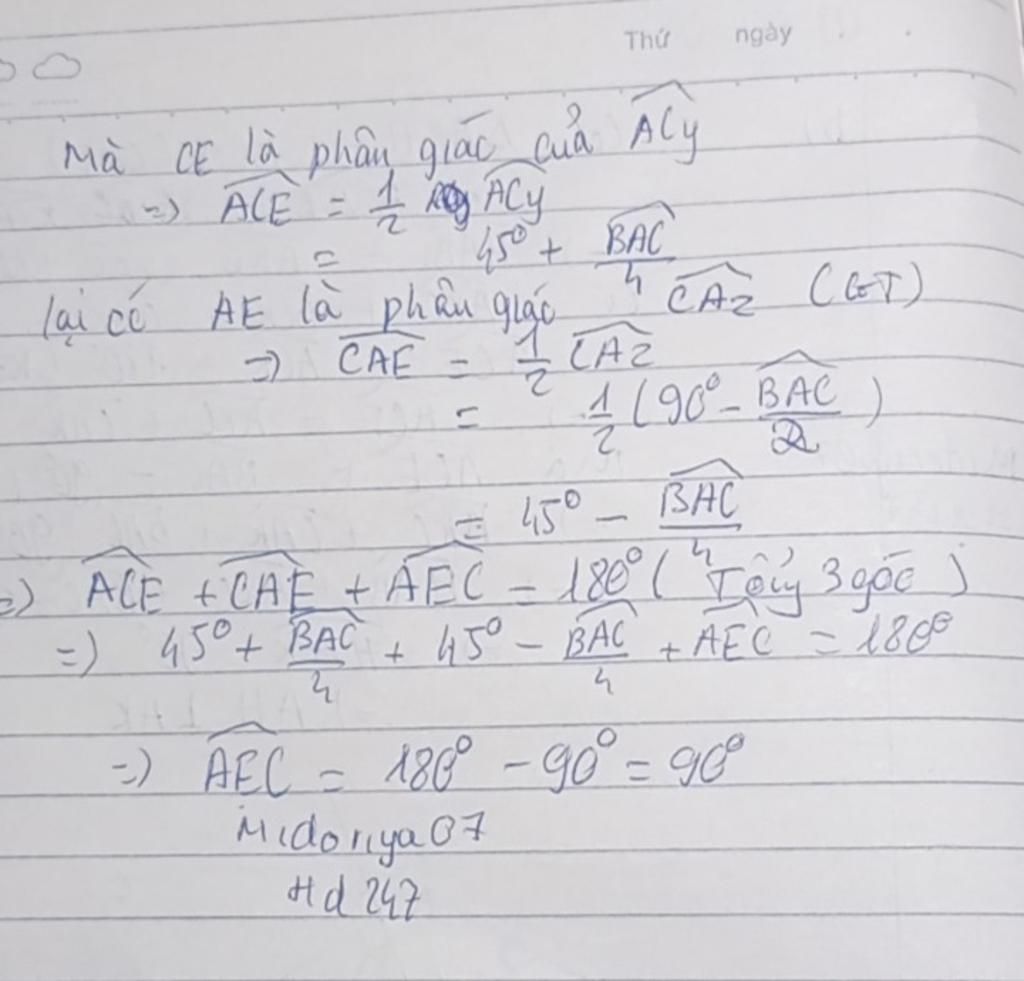 Thứ ngày
Mà CE là phân giác của ACy
=> ACE = 1/2 ACy
= 45° + BAC/4
lại có AE là phân giác CAz (GT)
=> CAE = 1/2 CAz
= 1/2 (90° - BAC/2)
= 45° - BAC/4
=> ACE + CAE + AEC = 180° (Tổng 3 góc)
=> 45° + BAC/4 + 45° - BAC/4 + AEC = 180°
=> AEC = 180° - 90° = 90°
Midoriya07
Hd 247